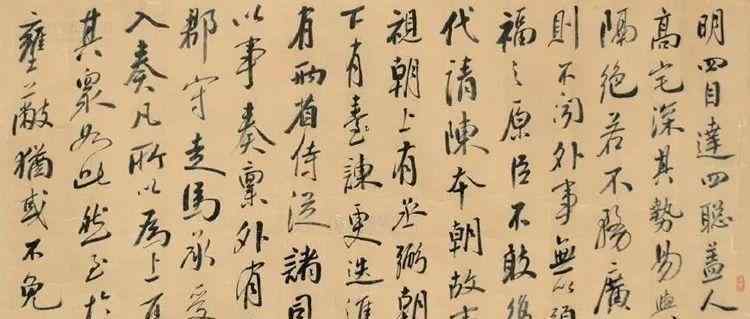 明四目達四聰蓋人
高宅深其勢易與
隔絶若不務廣
則不聞外事無以
福之原臣不敢復
代請陳本朝故
視朝上有丞弼朝
下有臺諫更迭進
有兩省侍從諸司
以事奏稟外有
郡守走馬承受
入奏凡所以為上耳
其眾如此然至於
壅蔽猶或不免